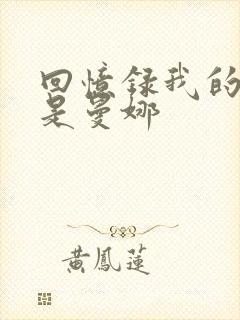 回憶錄我的
是曼娜
黃鳳蓮